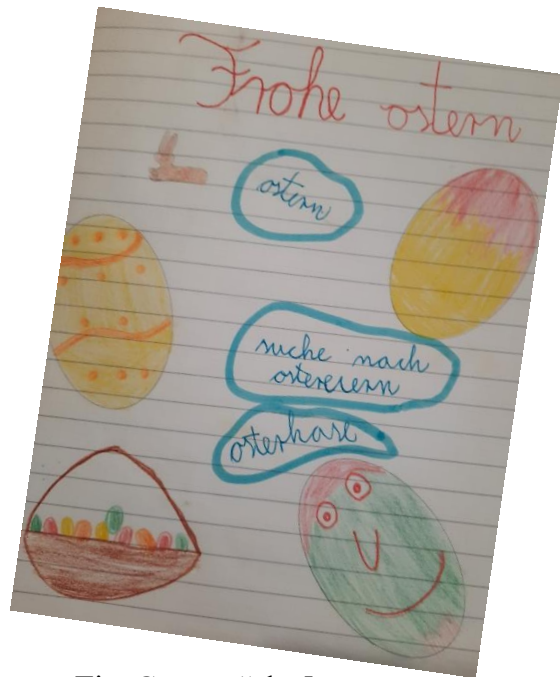 Frohe ostern
ostern
suche nach
ostereiern
osterhase